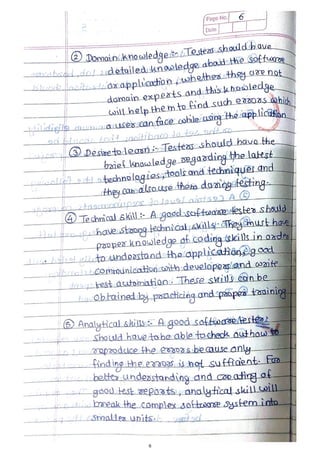 Page No. 6
Date
② Domain knowledge :- Testers should have
detailed knowledge about the software
or application, whether they are not
domain experts and this knowledge
will help them to find such errors which
a user can face while using the application
③ Desire to learn :- Testers should have the
brief knowledge regarding the latest
technologies, tools and techniques and
they can also use them during testing.
④ Technical skill :- A good software tester should
have strong technical skills. They must have
proper knowledge of coding skills in order
to understand the application, good
communication with developers and write
test automation. These skills can be
obtained by practicing and proper training
⑤ Analytical skills :- A good software tester
should have to be able to check out how to
reproduce the errors because only
finding the errors is not sufficient. For
better understanding and creating of
good test reports, analytical skill will
break the complex software system into
smaller units.
6